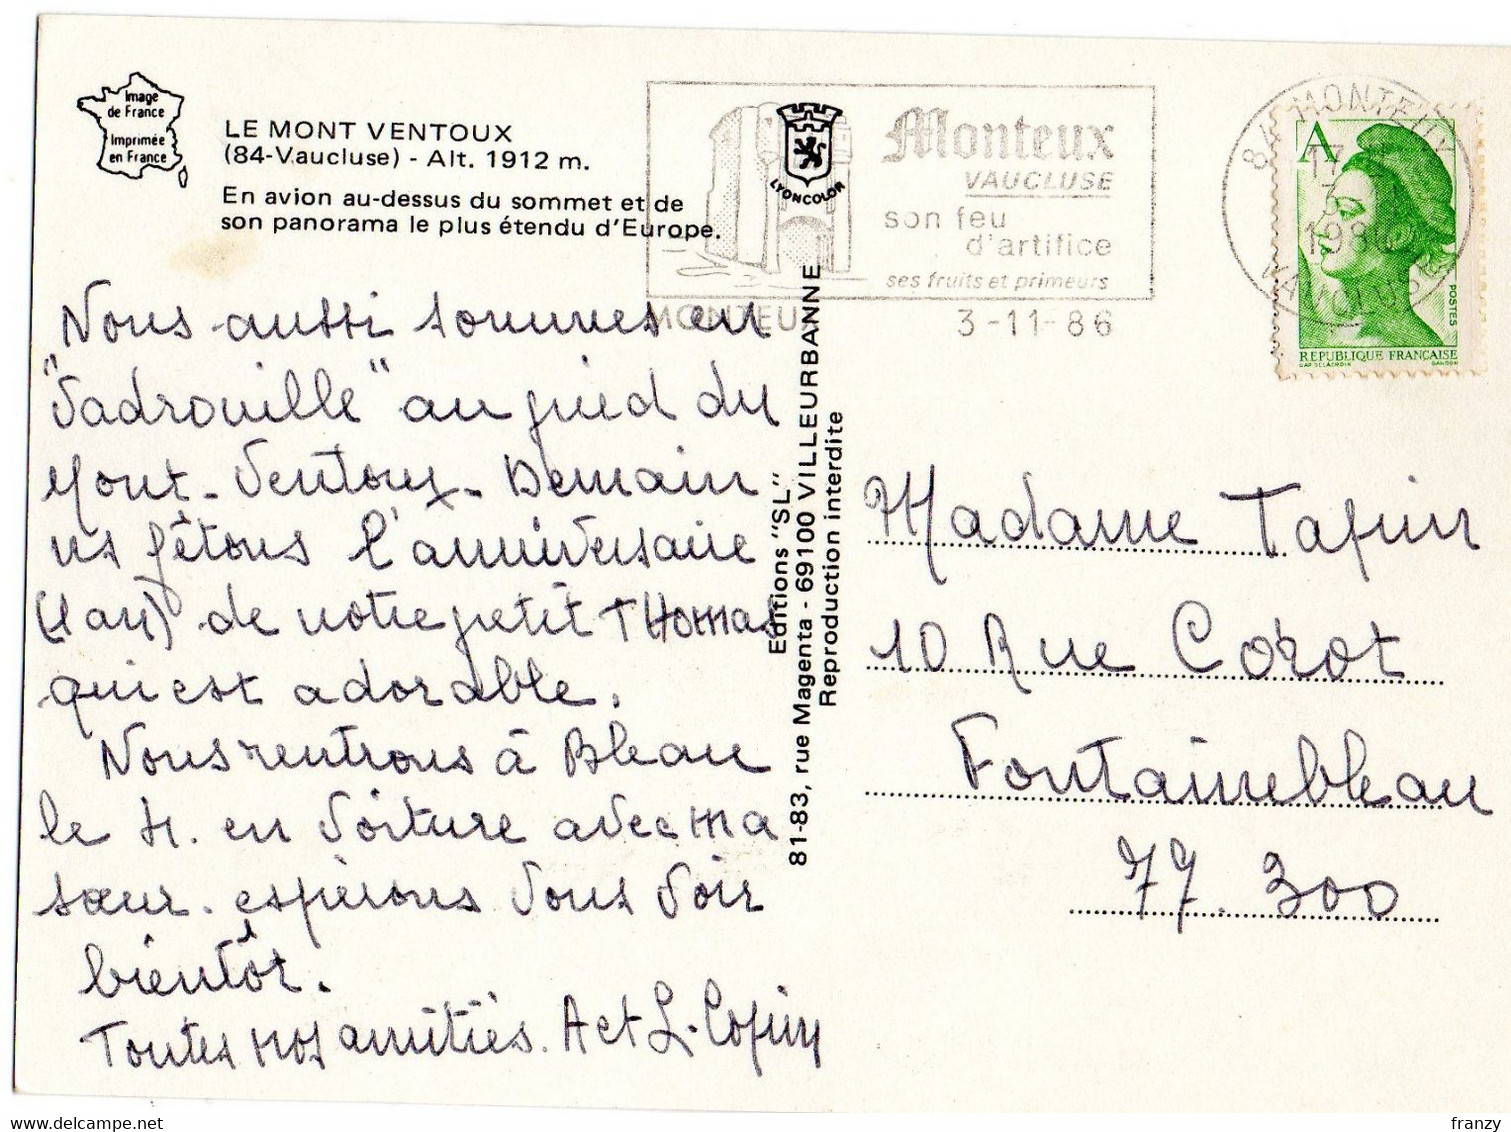 Image
de France
Imprimée
en France
LE MONT VENTOUX
(84-Vaucluse) - Alt. 1912 m.
En avion au-dessus du sommet et de
son panorama le plus étendu d'Europe.
LYONCOLOR
Monteux
VAUCLUSE
son feu
d'artifice
ses fruits et primeurs
MONTEUX
3-11-86
84 MONTEUX
17
3
1986
VAUCLUSE
A
POSTES
REPUBLIQUE FRANÇAISE
DAP DELACROIX GANDON
Nous aussi sommes en
"Vadrouille" au pied du
Mont-Ventoux - Demain
ns fêtons l'anniversaire
(1 an) de notre petit THomas
qui est adorable.
Nous rentrons à Bleau
le 11. en voiture avec ma
sœur. espérons vous voir
bientôt.
Toutes nos amitiés. A et L. Copin
Editions "SL"
81-83, rue Magenta - 69100 VILLEURBANNE
Reproduction interdite
Madame Tapin
10 Rue Corot
Fontainebleau
77.300
franzy